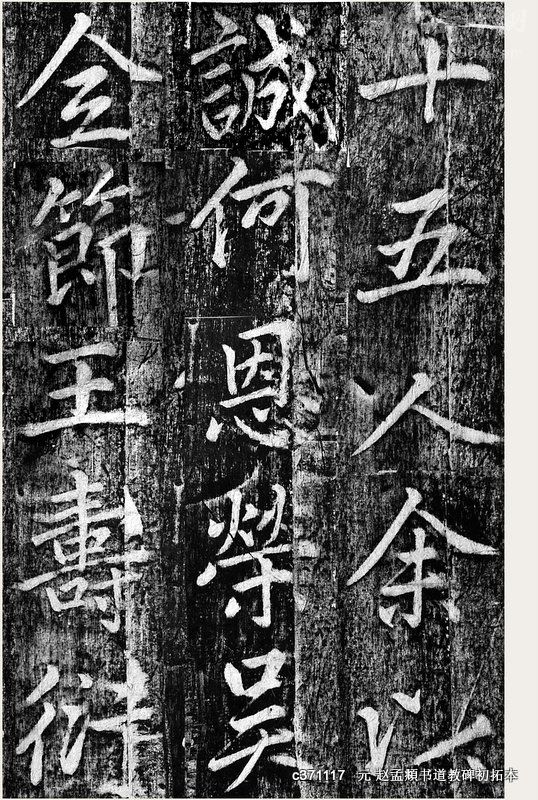 十五人余以
誠何恩榮吴
全節王壽衍
c371117 元 赵孟頫书道教碑初拓本